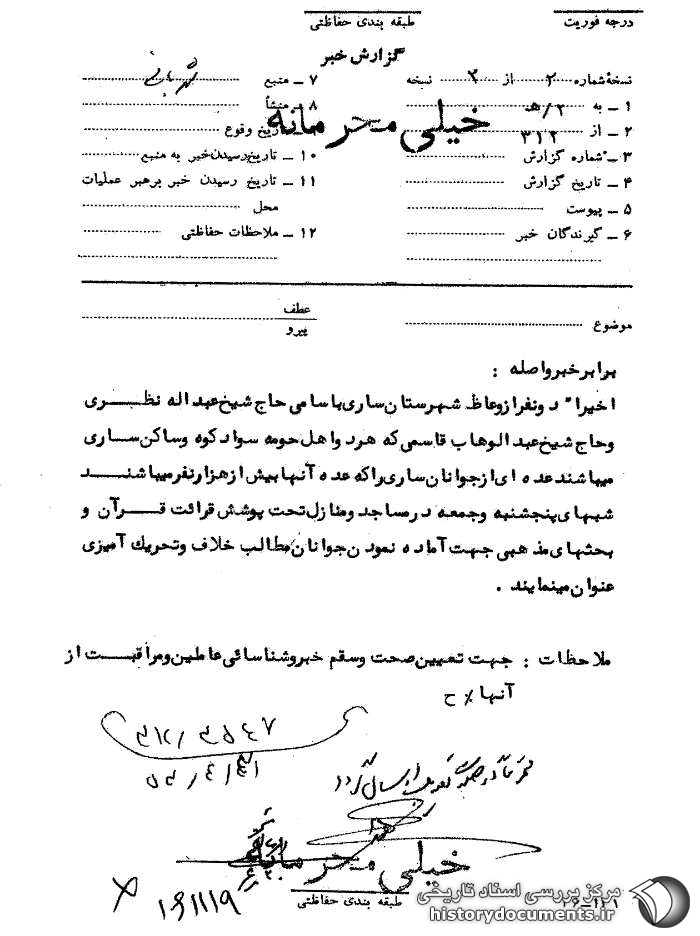 درجه فوریت
طبقه بندی حفاظتی
گزارش خبر
نسخهٔ شماره ۲ از ۳ نسخه
۱ ـ به ۲/هـ
۲ ـ از ۳۱۲
۳ ـ شماره گزارش
۴ ـ تاریخ گزارش
۵ ـ پیوست
۶ ـ گیرندگان خبر
۷ ـ منبع
۸ ـ منشأ
تاریخ وقوع
۱۰ ـ تاریخ رسیدن خبر به منبع
۱۱ ـ تاریخ رسیدن خبر برهبر عملیات
محل
۱۲ ـ ملاحظات حفاظتی
خیلی محرمانه
موضوع
عطف
پیرو
برابر خبر واصله :
اخیراً دونفر از وعاظ شهرستان ساری باسامی حاج شیخ عبد اله نظری
وحاج شیخ عبد الوهاب قاسمی که هرد واهل حومه سواد کوه وساکن ساری
میباشند عده ای از جوانان ساری راکه عده آنها بیش از هزارنفر میباشند
شبهای پنجشنبه وجمعه در مساجد ومنازل تحت پوشش قرائت قرآن و
بحثهای مذهبی جهت آماده نمودن جوانان مطالب خلاف وتحریک آمیزی
عنوان مینمایند .
ملاحظات : جهت تعیین صحت وسقم خبر وشناسائی عاملین ومراقبت از
آنها٪ ح
خیلی محرمانه
طبقه بندی حفاظتی
۱۶۱۱۱۹
۲۶-۱۲۱
مرکز بررسی اسناد تاریخی
historydocuments.ir